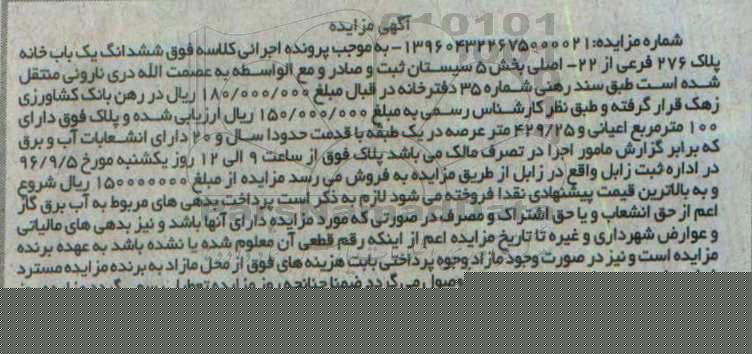 آگهی مزایده
شماره مزایده: ۱۳۹۶۰۴۳۲۲۶۷۵۰۰۰۰۲۱- به موجب پرونده اجرائی کلاسه فوق ششدانگ یک باب خانه
پلاک ۲۷۶ فرعی از ۲۲- اصلی بخش ۵ سیستان ثبت و صادر و مع الواسطه به عصمت الله دری نارونی منتقل
شده است طبق سند رهنی شماره ۳۵ دفترخانه در قبال مبلغ ۱۸۰/۰۰۰/۰۰۰ ریال در رهن بانک کشاورزی
زهک قرار گرفته و طبق نظر کارشناس رسمی به مبلغ ۱۵۰/۰۰۰/۰۰۰ ریال ارزیابی شده و پلاک فوق دارای
۱۰۰ مترمربع اعیانی و ۴۲۹/۲۵ متر عرصه در یک طبقه با قدمت حدودا سال و ۲۰ دارای انشعابات آب و برق
که برابر گزارش مامور اجرا در تصرف مالک می باشد پلاک فوق از ساعت ۹ الی ۱۲ روز یکشنبه مورخ ۹۶/۹/۵
در اداره ثبت زابل واقع در زابل از طریق مزایده به فروش می رسد مزایده از مبلغ ۱۵۰۰۰۰۰۰۰ ریال شروع
و به بالاترین قیمت پیشنهادی نقدا فروخته می شود لازم به ذکر است پرداخت بدهی های مربوط به آب برق گاز
اعم از حق انشعاب و یا حق اشتراک و مصرف در صورتی که مورد مزایده دارای آنها باشد و نیز بدهی های مالیاتی
و عوارض شهرداری و غیره تا تاریخ مزایده اعم از اینکه رقم قطعی آن معلوم شده یا نشده باشد به عهده برنده
مزایده است و نیز در صورت وجود مازاد وجوه پرداختی بابت هزینه های فوق از محل مازاد به برنده مزایده مسترد
وصول می گردد ضمنا چنانچه روز مزایده تعطیل رسمی گردد مزایده